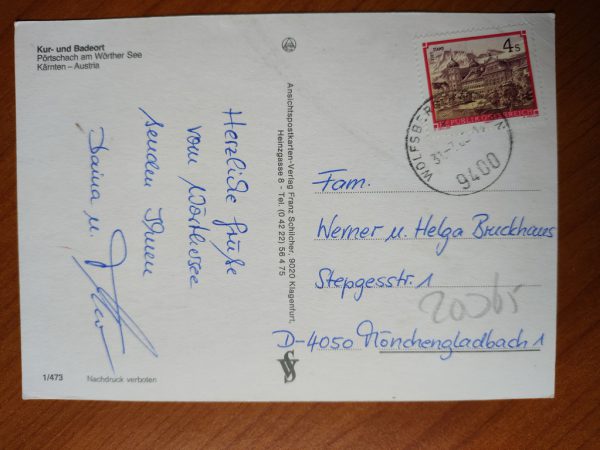 Kur- und Badeort
Pörtschach am Wörther See
Kärnten – Austria
Herzliche Grüße
vom Wörthersee
senden Ihnen
Daina u.
1/473
Nachdruck verboten
Ansichtspostkarten-Verlag Franz Schilcher, 9020 Klagenfurt,
Heinzgasse 8 - Tel. (0 42 22) 56 4 75
4S
STIFT STAMS
REPUBLIK ÖSTERREICH
9400
Fam.
Werner u. Helga Bruckhaus
Stepgesstr. 1
D-4050 Mönchengladbach 1